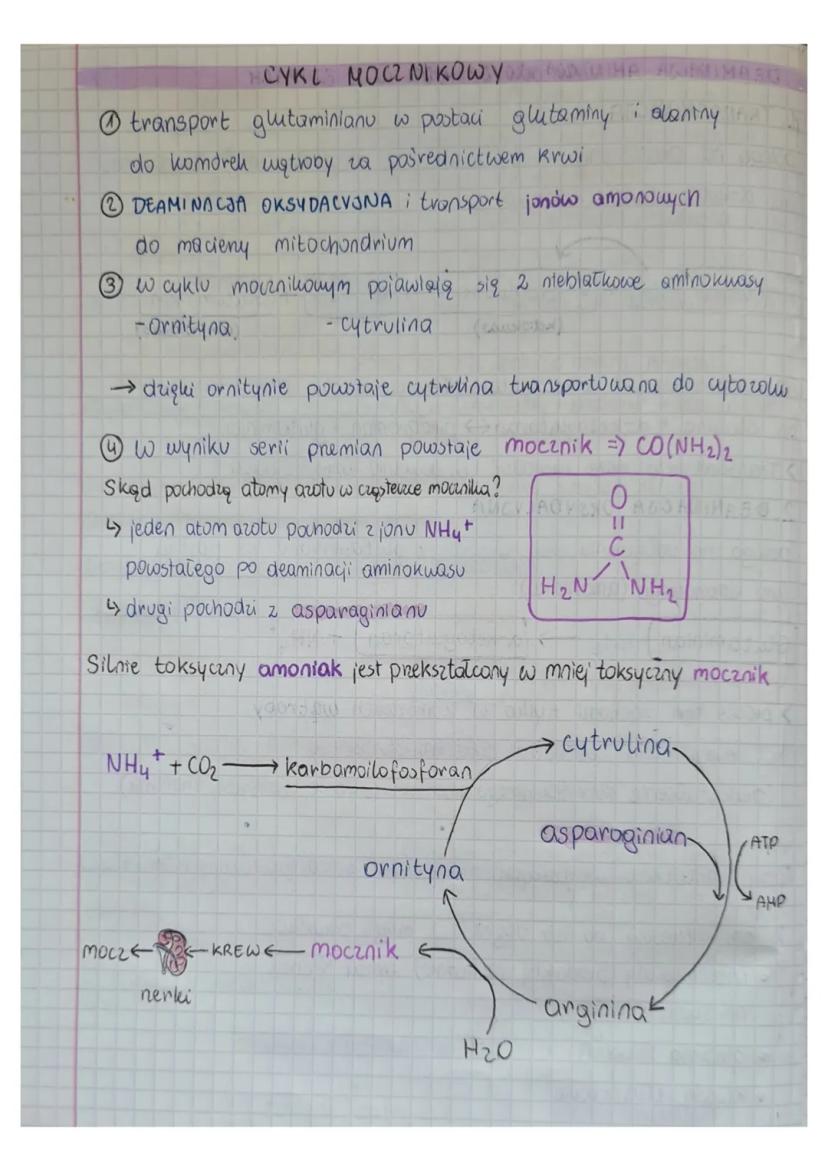 CYKL MOCZNIKOWY
① transport glutaminianu w postaci glutaminy i alaniny
do komórek wątroby za pośrednictwem krwi
② DEAMINACJA OKSYDACYJNA i transport jonów amonowych
do macierzy mitochondrium
③ W cyklu mocznikowym pojawiają się 2 niebiałkowe aminokwasy
- Ornityna - cytrulina
→ dzięki ornitynie powstaje cytrulina transportowana do cytozolu
④ W wyniku serii przemian powstaje mocznik => CO(NH2)2
Skąd pochodzą atomy azotu w cząsteczce mocznika?
↳ jeden atom azotu pochodzi z jonu NH4+
powstałego po deaminacji aminokwasu
↳ drugi pochodzi z asparaginianu
O
C
H2N NH2
Silnie toksyczny amoniak jest przekształcony w mniej toksyczny mocznik
NH4+ + CO2 → karbamoilofosforan
cytrulina
asparaginian
ATP
AMP
ornityna
MOCZ ← ← KREW ← mocznik
nerki
arginina
H2O